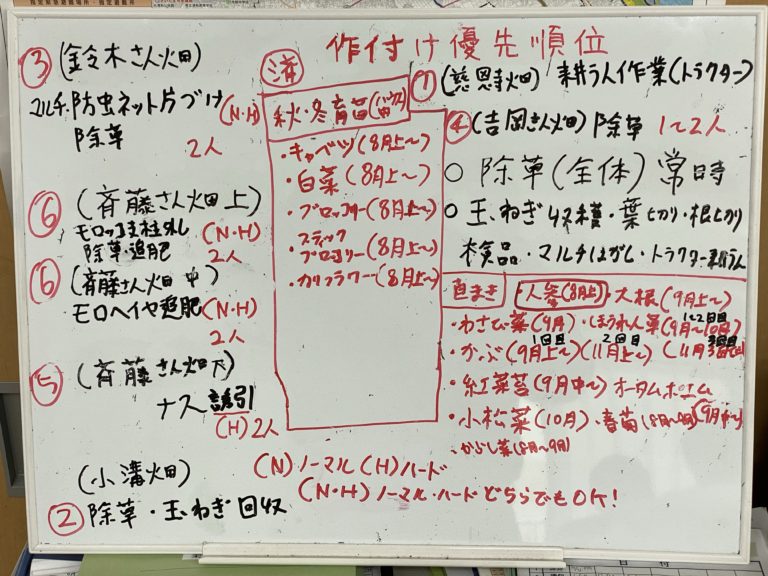 作付け優先順位
③ (鈴木さん畑)
マルチ・防虫ネット片づけ (N・H)
除草
2人
⑥ (斉藤さん畑上)
モロッコ支柱外し (N・H)
除草・追肥 2人
⑥ (斉藤さん畑中)
モロヘイヤ追肥 (N・H)
2人
⑤ (斉藤さん畑下)
ナス誘引
(H) 2人
(小溝畑)
② 除草・玉ねぎ回収
済
秋・冬育苗
・キャベツ(8月上〜)
・白菜(8月上〜)
・ブロッコリー(8月上〜)
・スティック
ブロッコリー(8月上〜)
・カリフラワー(8月上〜)
① (慈恩寺畑) 耕うん作業(トラクター)
④ (吉岡さん畑) 除草 1〜2人
○ 除草(全体) 常時
○ 玉ねぎ収穫・葉切り・根切り
検品・マルチはがし・トラクター耕うん
直まき ・人参(8月上) ・大根(9月上〜)
・わさび菜(9月) ・ほうれん草(9月〜10月) 1〜2回目
・かぶ(9月上〜) 1回目 (11月上〜) 2回目
・紅菜苔(9月中〜) オータムポエム
・小松菜(10月) ・春菊(8月〜9月) (9月中〜)
・からし菜(8月〜9月)
(N)ノーマル (H)ハード
(N・H)ノーマル・ハードどちらでもOK!